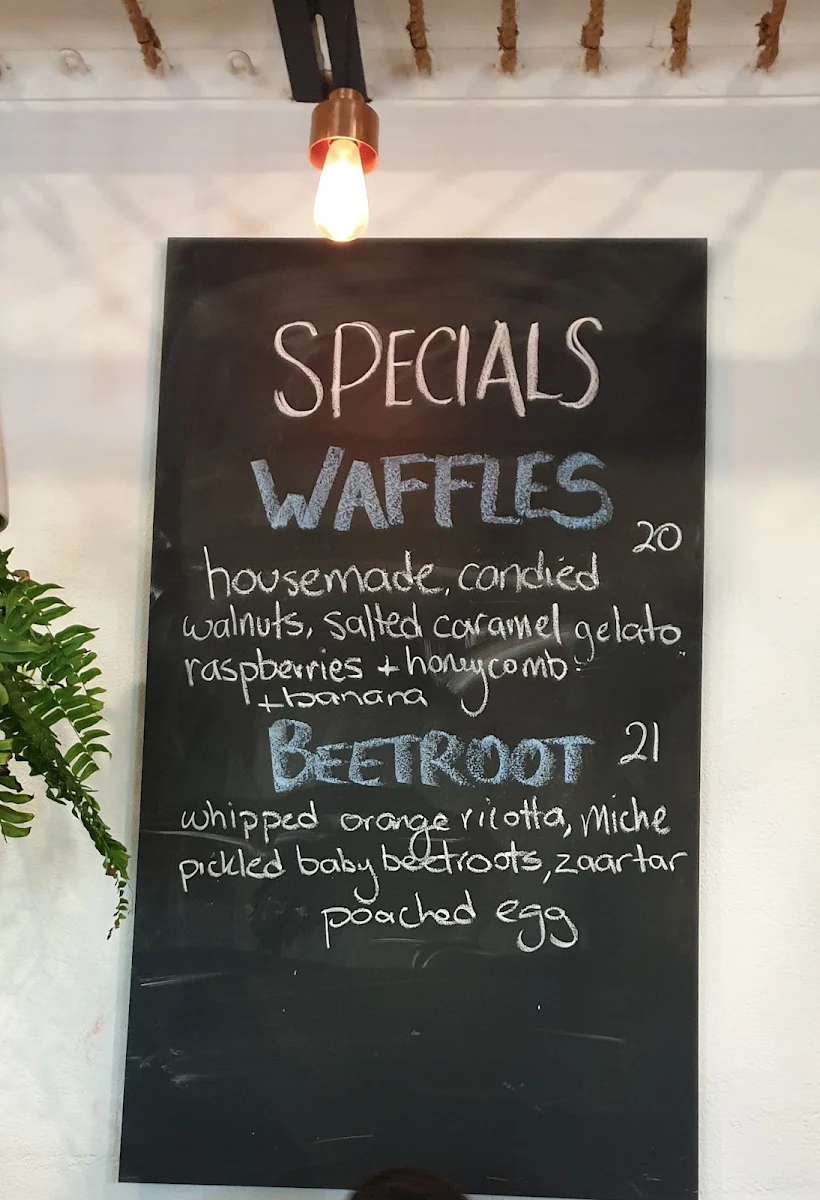 SPECIALS
WAFFLES
20
housemade, candied
walnuts, salted caramel gelato
raspberries + honeycomb
+banana
BEETROOT 21
whipped orange ricotta, Miche
pickled baby beetroots, zaartar
poached egg